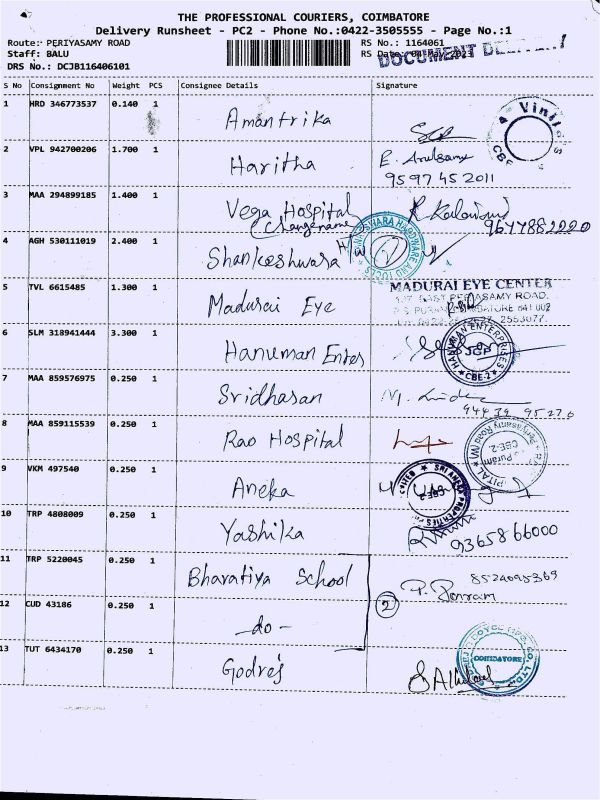 THE PROFESSIONAL COURIERS, COIMBATORE
Delivery Runsheet - PC2 - Phone No.:0422-3505555 - Page No.:1
Route: PERIYASAMY ROAD RS No.: 1164061
Staff: BALU RS Date:
DRS No.: DCJB116406101
DOCUMENT DELIVERY
S No Consignment No Weight PCS Consignee Details Signature
1 HRD 346773537 0.140 1 Amantrika
2 VPL 942700206 1.700 1 Haritha E. Arulsamy
9597452011
3 MAA 294899185 1.400 1 Vega Hospital
(Change name 9677882220
4 AGH 530111019 2.400 1 Shankeshwara
5 TVL 6615485 1.300 1 Madurai Eye MADURAI EYE CENTER
6 SLM 318941444 3.300 1 Hanuman Enters HANUMAN ENTERPRISES JGP CBE-2
7 MAA 859576975 0.250 1 Sridhasan
94439 95276
8 MAA 859115539 0.250 1 Rao Hospital
9 VKM 497540 0.250 1 Aneka
10 TRP 4808009 0.250 1 Yashika
9365866000
11 TRP 5220045 0.250 1 Bharatiya School 8524095369
12 CUD 43186 0.250 1 -do- 2 P. Ponram
13 TUT 6434170 0.250 1 Godrej COIMBATORE